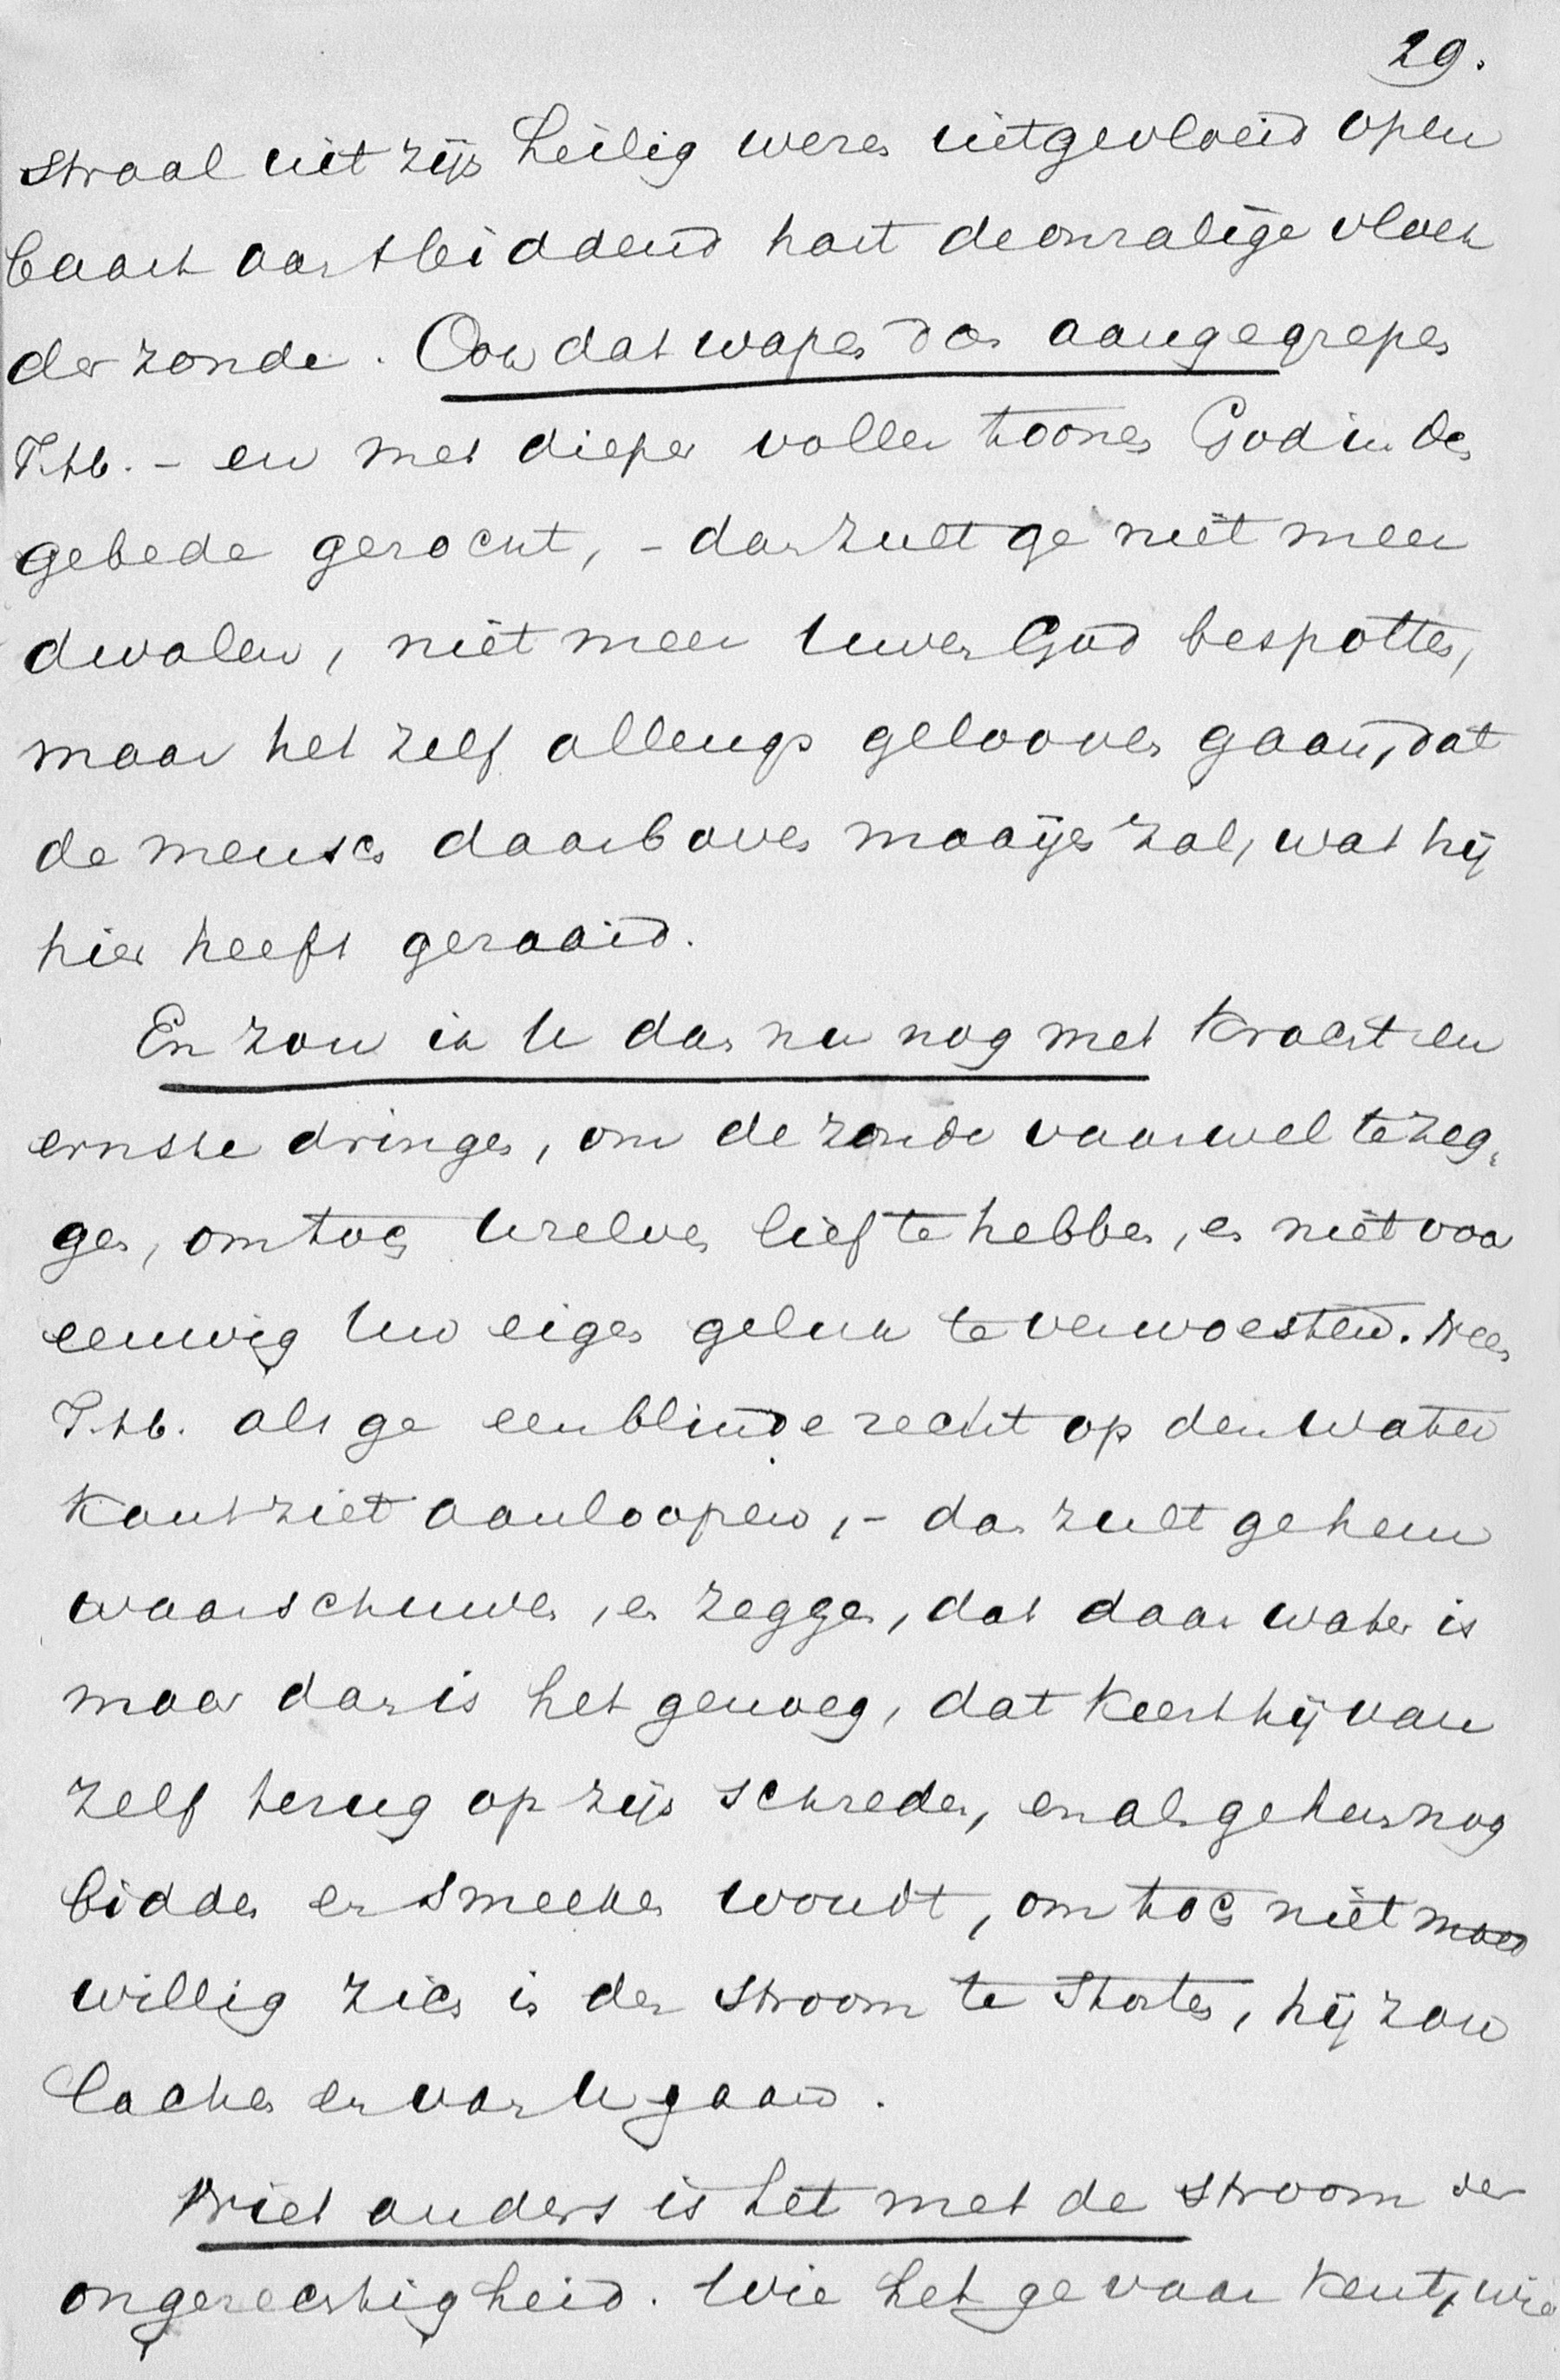 29.
straal uit zijn heilig wezen uitgevloeid open
baart aan 't biddend hart de onzalige vloek
der zonde. Ook dat wapen dan aangegrepen
T.H.b. – en met diepen vollen toonen God in den
gebede gezocht, – dan zult ge niet meer
dwalen, niet meer Uwen God bespotten,
maar het zelf allengs gelooven gaan, dat
de mensch daarboven maaijen zal, wat hij
hier heeft gezaaid.
En zou ik U dan nu nog met kracht en
ernste dringen, om de zonde vaarwel te zeg,
gen, om toch Uzelven lief te hebben, en niet voor
eeuwig Uw eigen geluk te verwoesten. Neen
T.H.b. als ge een blinde recht op den water
kant ziet aanloopen, – dan zult ge hem
waarschuwen, en zeggen, dat daar water is
maar dan is het genoeg, dat keert hij van
zelf terug op zijn schreden, en als ge hem nog
bidden en smeeken woudt, om toch niet moed
willig zich in den stroom te storten, hij zou
lachen en van U gaan.
Niet anders is het met de stroom der
ongerechtigheid. Wie het gevaar kent, wie